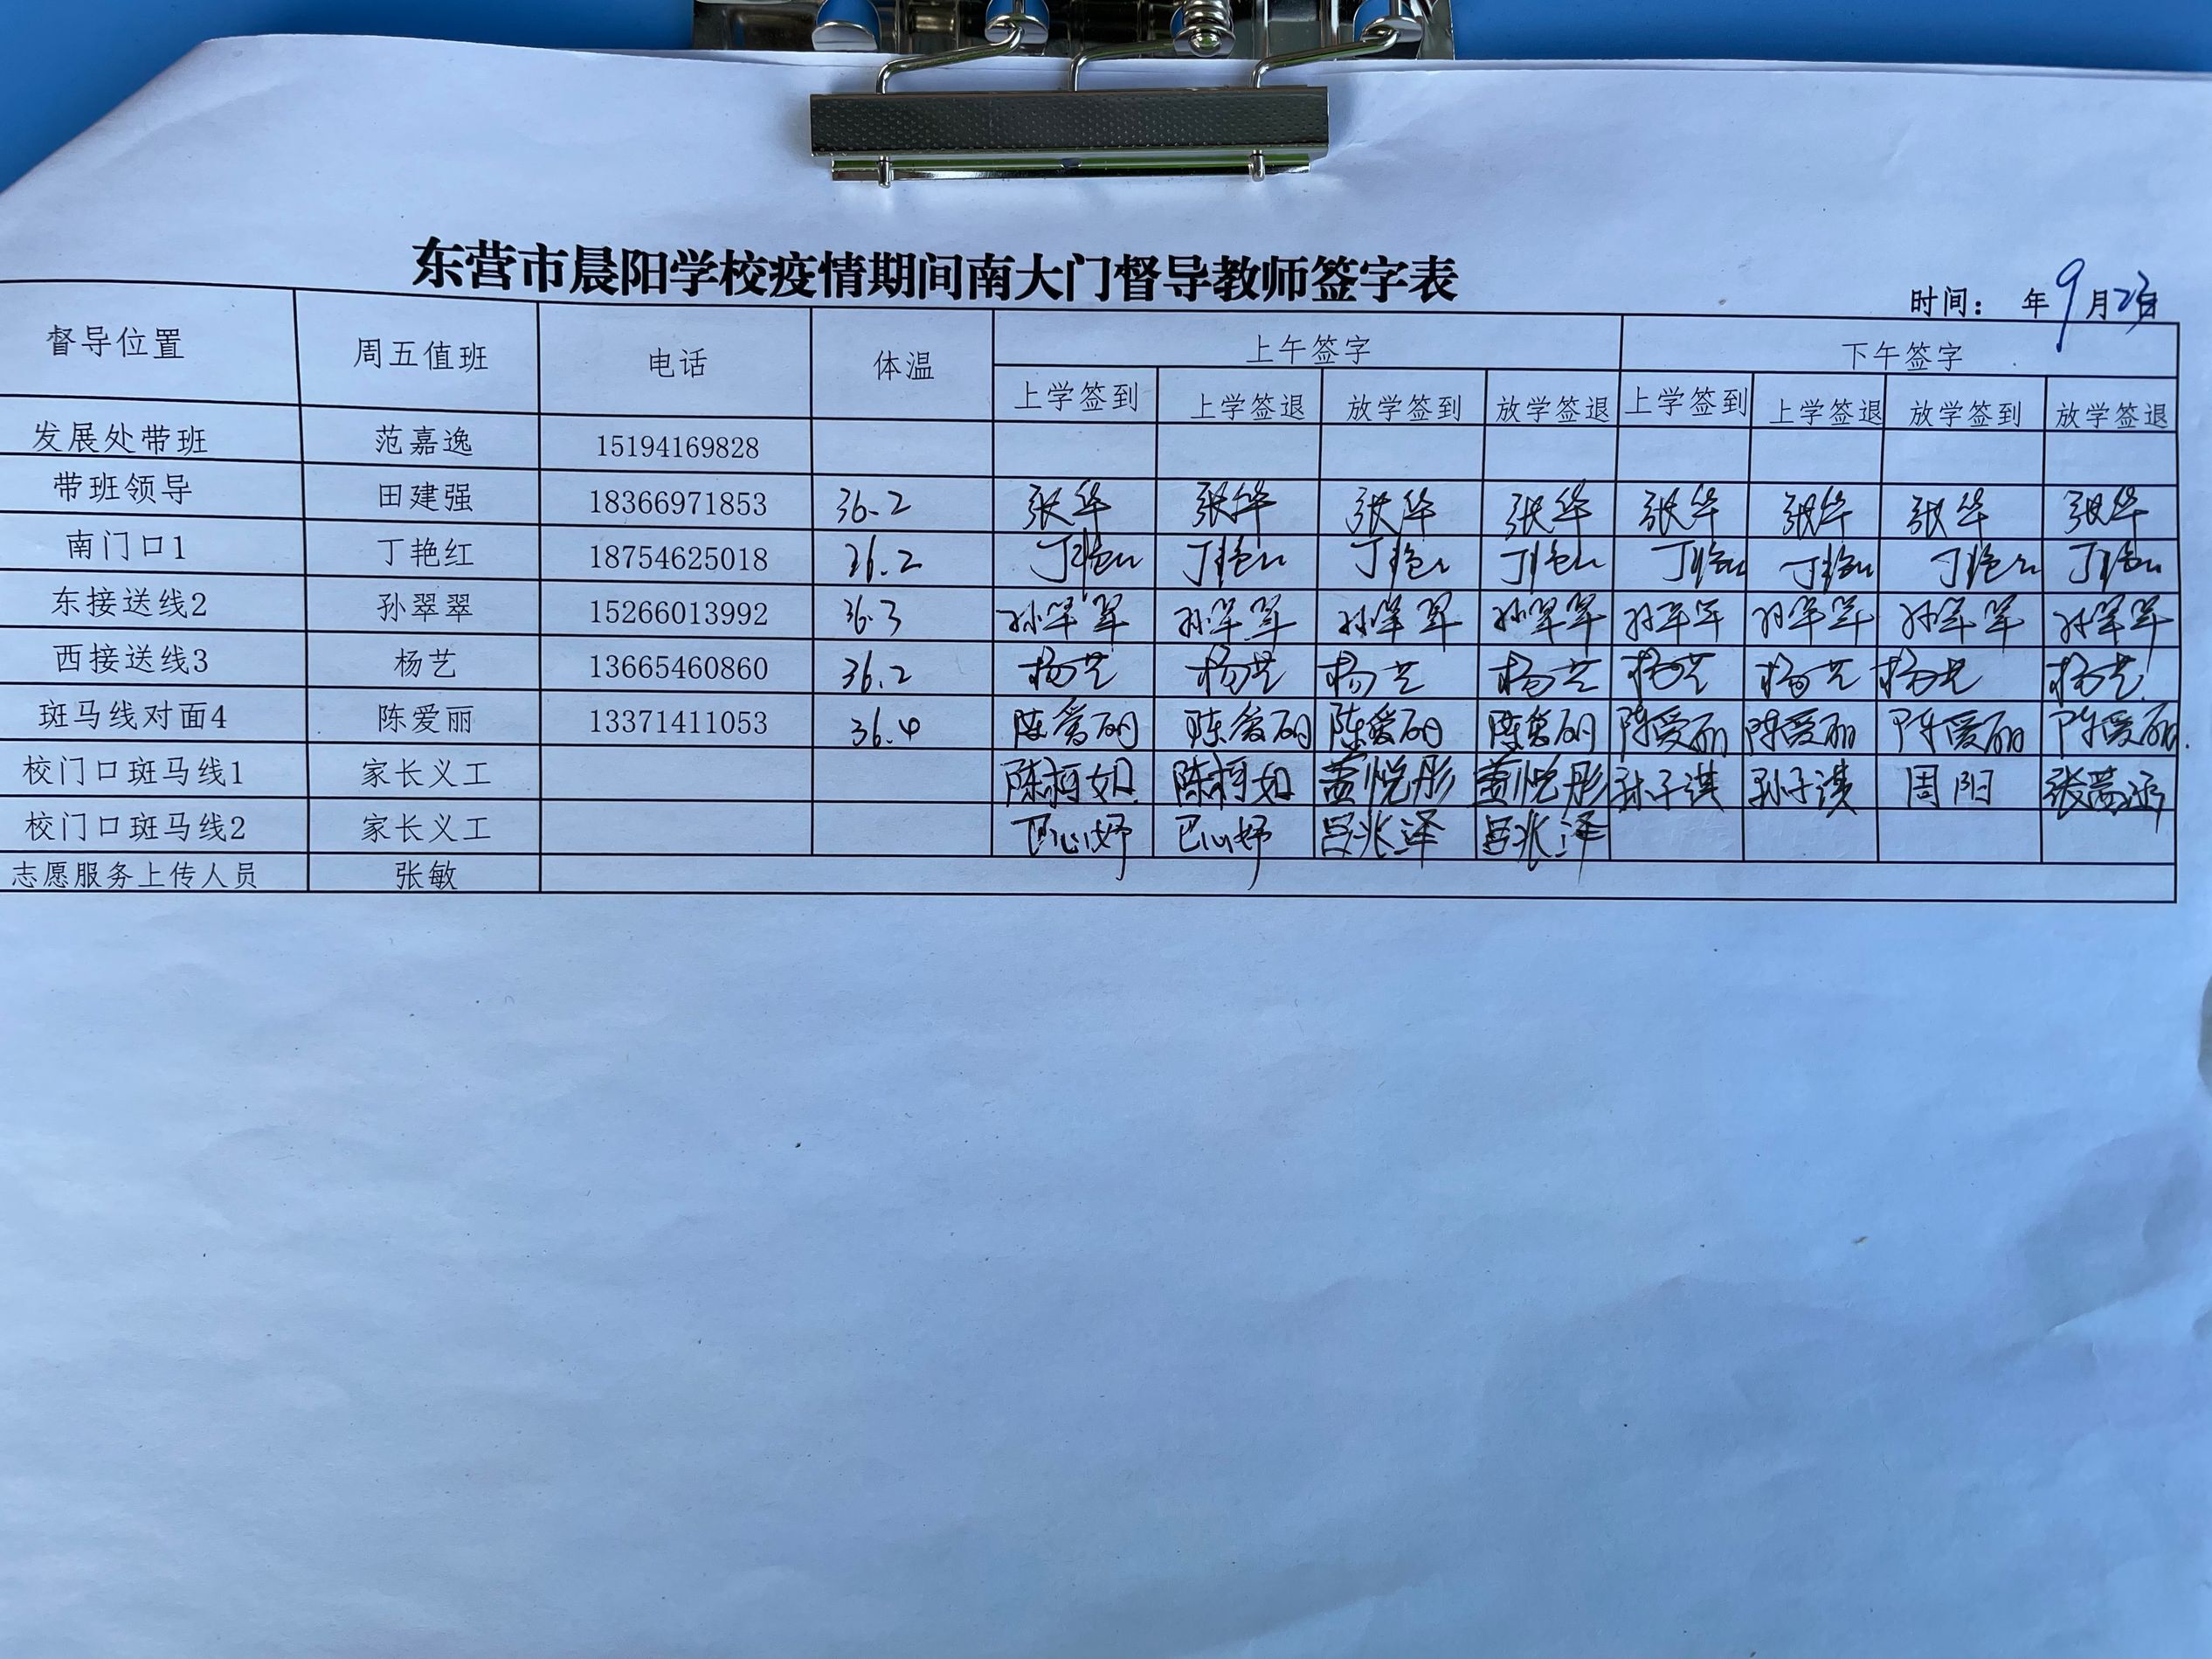 东营市晨阳学校疫情期间南大门督导教师签字表
时间： 年9月23日
督导位置 周五值班 电话 体温 上午签字 下午签字
上学签到 上学签退 放学签到 放学签退 上学签到 上学签退 放学签到 放学签退
发展处带班 范嘉逸 15194169828
带班领导 田建强 18366971853 36.2 张华 张华 张华 张华 张华 张华 张华 张华
南门口1 丁艳红 18754625018 36.2 丁艳红 丁艳红 丁艳红 丁艳红 丁艳红 丁艳红 丁艳红 丁艳红
东接送线2 孙翠翠 15266013992 36.3 孙翠翠 孙翠翠 孙翠翠 孙翠翠 孙翠翠 孙翠翠 孙翠翠 孙翠翠
西接送线3 杨艺 13665460860 36.2 杨艺 杨艺 杨艺 杨艺 杨艺 杨艺 杨艺 杨艺
斑马线对面4 陈爱丽 13371411053 36.4 陈爱丽 陈爱丽 陈爱丽 陈爱丽 陈爱丽 陈爱丽 陈爱丽 陈爱丽
校门口斑马线1 家长义工 陈柯如 陈柯如 孙子淇 孙子淇 周阳
校门口斑马线2 家长义工 巴心妤 巴心妤 吕兆泽 吕兆泽
志愿服务上传人员 张敏